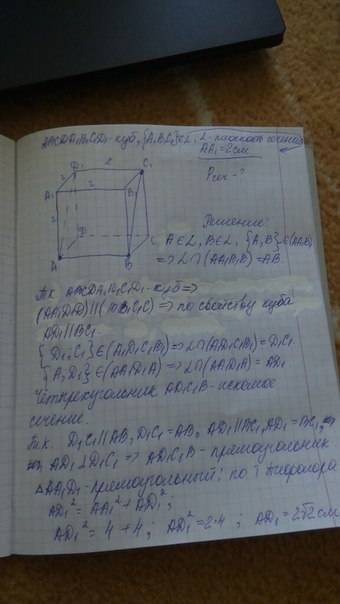 ABCDA₁B₁C₁D₁ - куб, {A, B, C₁} ∈ α, α - плоскость сечения
AA₁ = 2 см
Pсеч - ?
D₁ 2 C₁
2
A₁ 2 B₁
2
D C
A B
Решение:
A∈α, B∈α, {A,B}∈(AA₁B₁)
=> α∩(AA₁B₁B) = AB.
Тк ABCDA₁B₁C₁D₁ - куб =>
(AA₁D₁D)||(BB₁C₁C) => по свойству куба
AD₁||BC₁
{D₁,C₁}∈(A₁D₁C₁B₁) => α∩(A₁D₁C₁B₁) = D₁C₁
{A,D₁}∈(AA₁D₁D) => α∩(AA₁D₁D) = AD₁
Четырехугольник AD₁C₁B - искомое
сечение.
Тк. D₁C₁||AB, D₁C₁=AB, AD₁||BC₁, AD₁=BC₁,
AD₁⊥D₁C₁ => AD₁C₁B - прямоугольник
△AA₁D₁ - прямоугольный; по т Пифагора
AD₁² = AA₁² + AD₁²;
AD₁² = 4+4; AD₁² = 2·4; AD₁ = 2√2 см